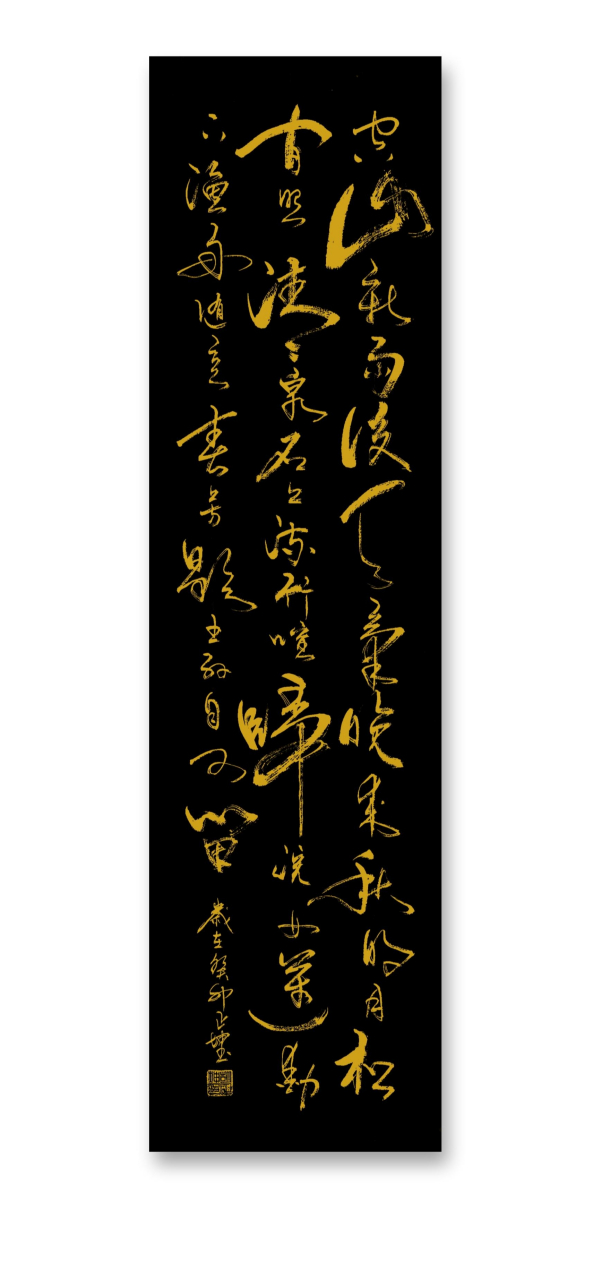 空山新雨後天氣晚來秋明月松
間照清泉石上流竹喧歸浣女蓮動
下漁舟隨意春芳歇王孫自可留 歲在癸卯